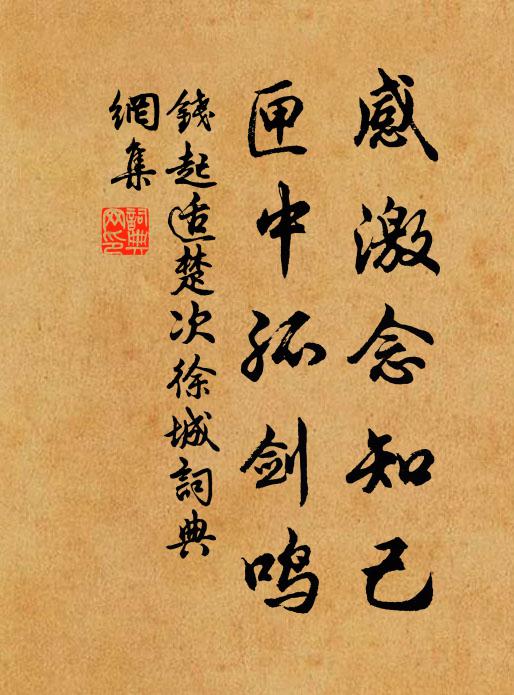 感激念知己
匣中孤剑鸣
錢起适楚次徐城詞典
網集
詞典網印